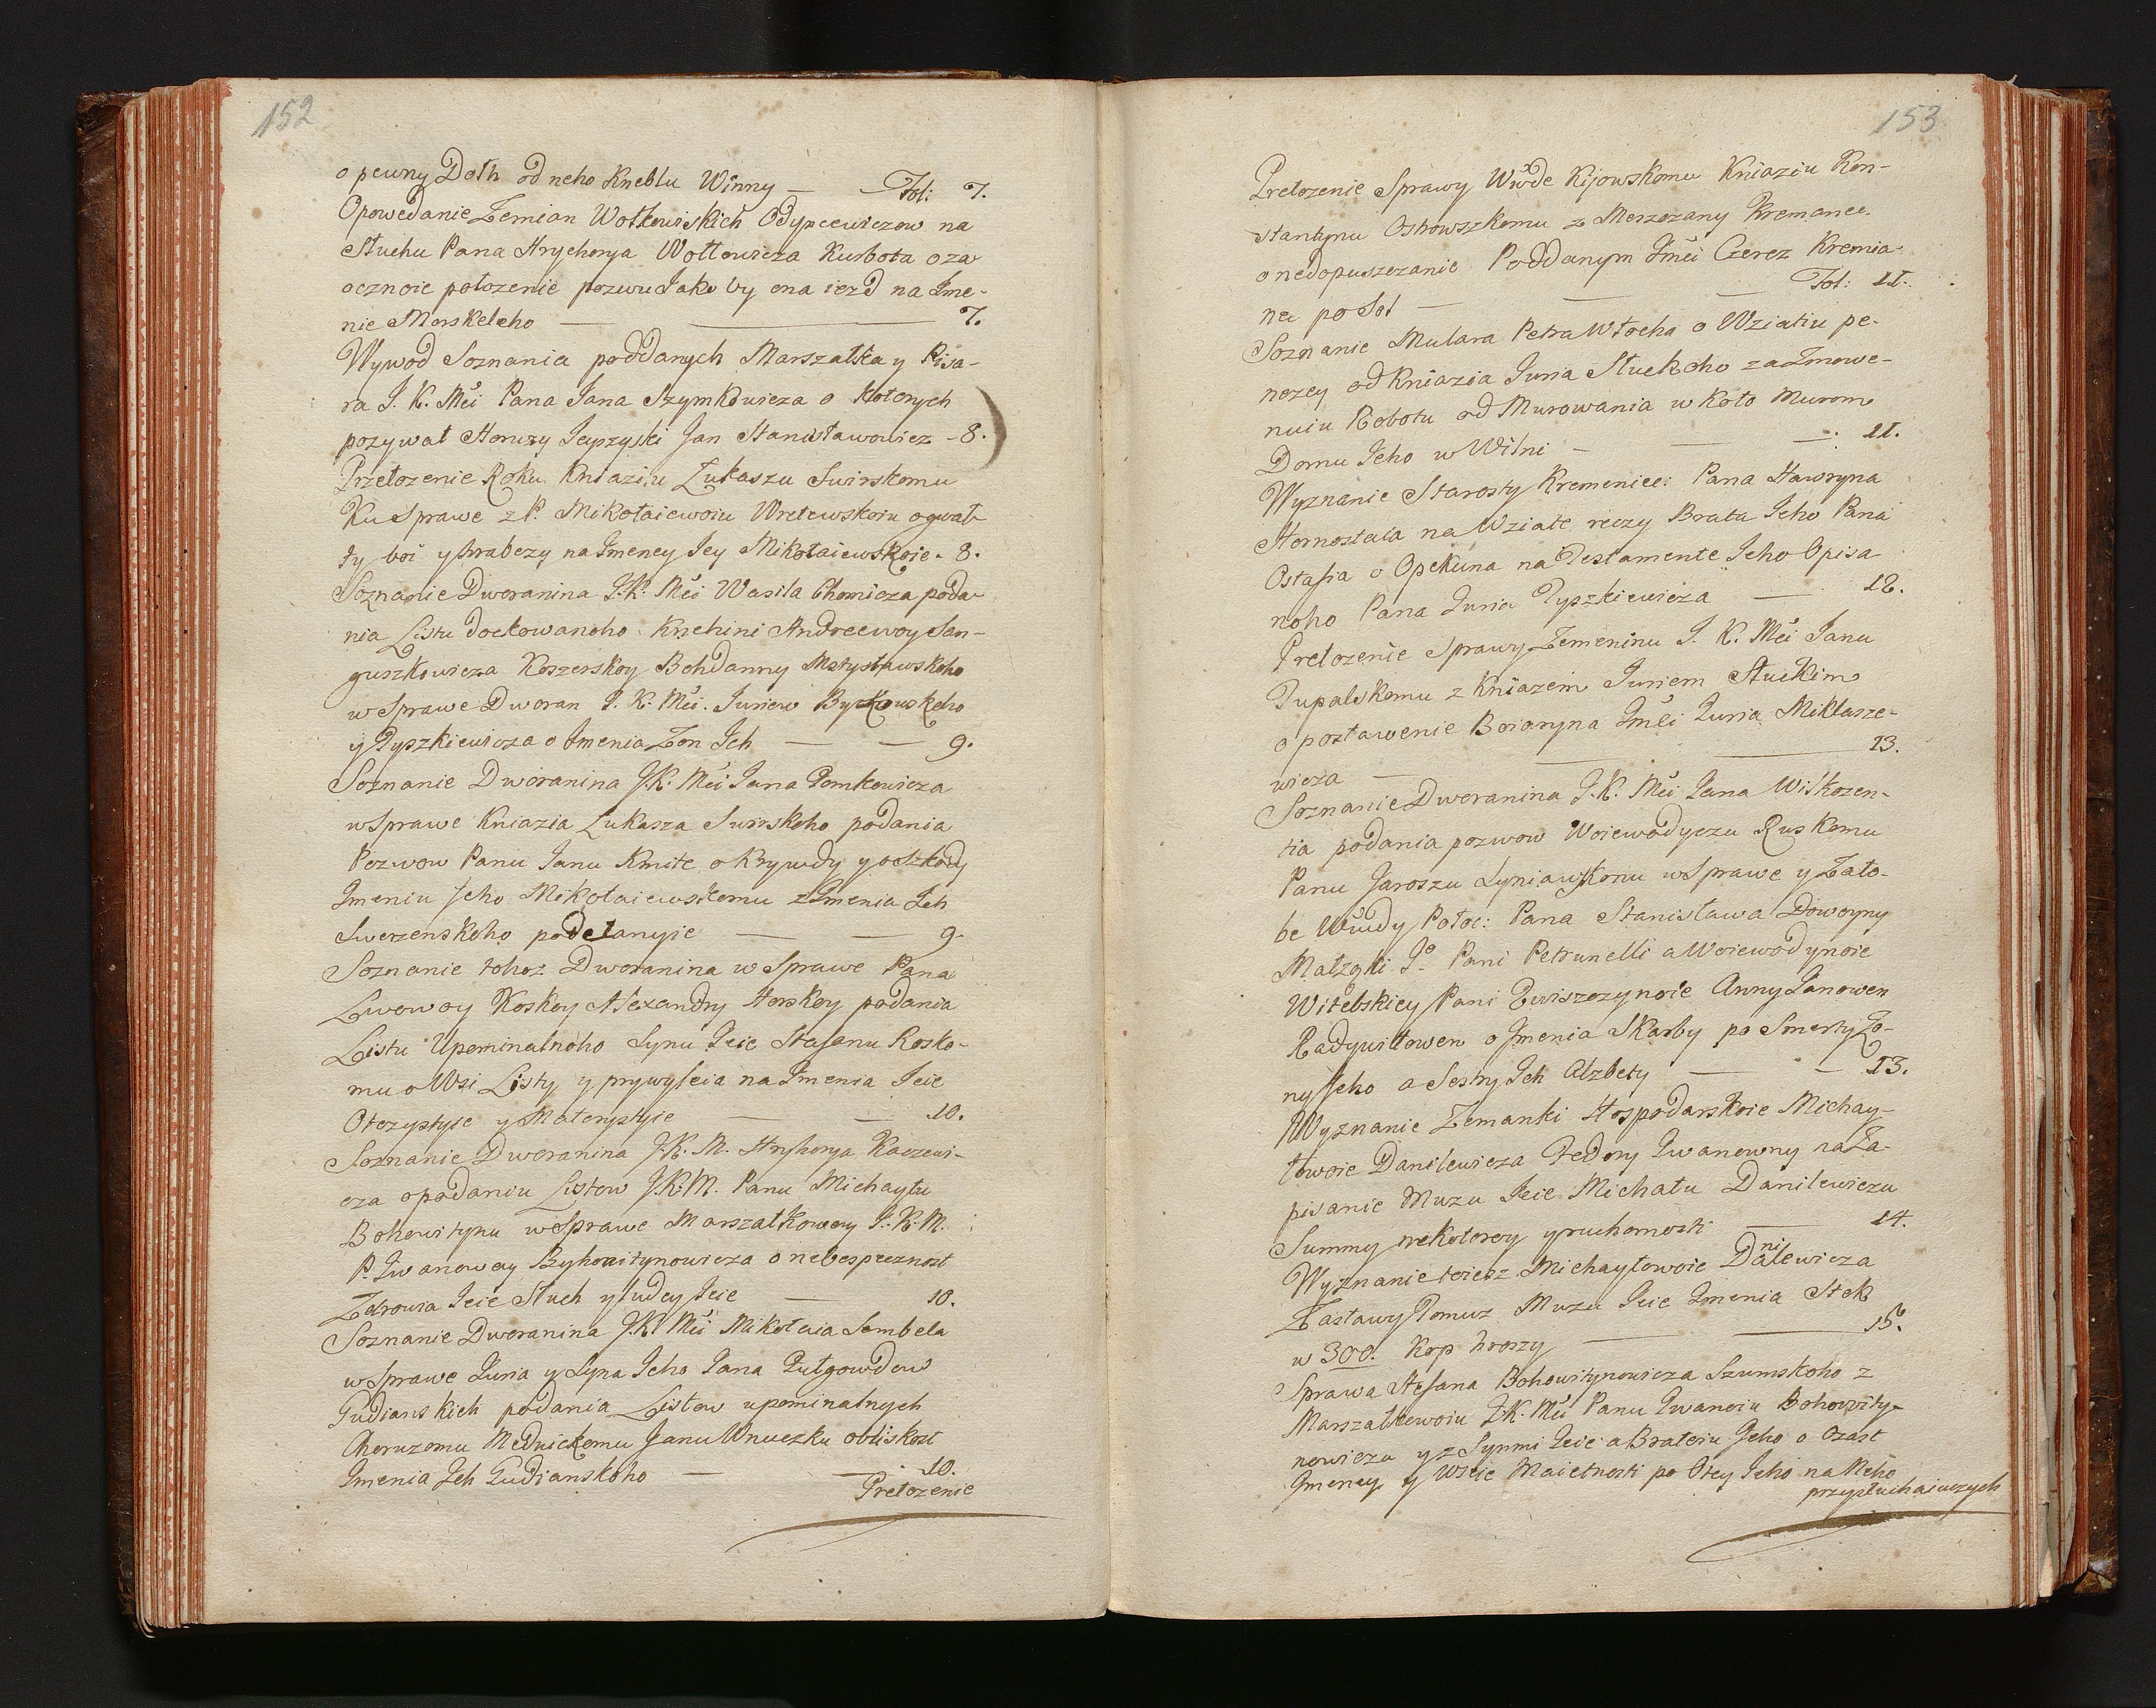 152
o pewny Dołh od neho Kneblu Winny — Fol: 7.
Opowedanie Zemian Wołkowiskich Odypcewiczow na
Słuchu Pana Hrychorya Wołłowicza Kurbota o za
ocznoie położenie pozwu Jako by ona iezd na Jme-
nie Morskeleho — — 7.
Wywod Soznania poddanych Marszałka y Pisa-
ra J. K. Mći Pana Jana Szymkowicza o Kotorych
pozywał Horuży Jeyszyski Jan Stanisławowicz - 8.
Przełożenie Roku Kniaziu Łukaszu Swirskomu
Ku Sprawe z P. Mikołaiewoiu Wretewskoiu o gwał-
ty boi y hrabezy na Jmeney Jey Mikołaiewskoie - 8.
Soznanie Dworanina J.K. Mći Wasila Chomicza poda-
nia Listu doekowanoho Knehini Andreewoy San-
guszkowicza Koszerskoy Bohdanny Matysławskoho
w Sprawe Dworan J. K. Mći. Juriew Bykowskoho
y Tyszkiewicza o Jmenia Zon Jch — — 9.
Soznanie Dworanina J.K. Mći Jana Tomkowicza
w Sprawe Kniazia Łukasza Swirskoho podania
Pozwow Panu Janu Kmite o Krywdy y o Szkody
Jmeniu Jeho Mikołaiewskomu z Jmenia Jch
Swerzenskoho podełanyie — — 9.
Soznanie tohoż Dworanina w Sprawe Pana
Lwowoy Koskoy Alexandry Horskoy podania
Listu Upominalnoho Synu Jeie Stefanu Kosko-
mu o Wsi Listy y prywyleia na Jmenia Jeie
Otczystyie y Materystyie — — 10.
Soznanie Dworanina J.K.M. Hryhorya Raczewi-
cza o podaniu Listow J.K.M. Panu Michayłu
Bohowitynu w Sprawe Marszałkowoy J.K.M.
P. Iwanowoy Byhowitynowicza o nebespecznost
Zdrowia Jeie Sług y ludey Jeie — 10.
Soznanie Dworanina J.K. Mći Mikołaia Sombela
w Sprawe Juria y Syna Jeho Jana Pułgowdow
Gudianskich podania Listow upominalnych
Choruzomu Mednickomu Janu Wnuczku obliskost
Jmenia Jch Gudianskoho — — 10.
Prełożenie
153
Prełożenie Sprawy Wwde Kijowskomu Kniaziu Kon-
stantynu Ostrowszkomu z Meszczany Kremanec.
o nedopuszczanie Poddanym Jmći Czerez Kremia-
nec po Sol — — — Fol: 11.
Soznanie Mulara Petra Włocha o Wziatiu pe-
nezey od Kniazia Juria Słuckoho za Zmowe-
nuiu Robotu od Murowania w Koło Murom
Domu Jeho w Wilni — — — 11.
Wyznanie Starosty Kremeniec: Pana Hawryna
Hornostaia na Wziate reczy Brata Jeho Pana
Ostafia o Opekuna na Testamente Jeho Opisa
noho Pana Juria Tyszkiewicza — 12.
Prełożenie Sprawy Zemeninu J. K. Mći Janu
Pupalskomu z Kniazem Juriem Słuckim
o postawenie Boiaryna Jmći Juria Miklasze-
wicza — — — 13.
Soznanie Dworanina J.K. Mći Jana Wiskozen-
tia podania pozwow Woiewodyczu Ruskomu
Panu Jaroszu Syniawskomu w Sprawe y Zało-
be Wwdy Połoc: Pana Stanisława Dowoyny
Małżąki Jº Pani Petrunelli a Woiewodynoie
Witebskiey Pani Kwiszczynoie Anny Janowen
Radywiłowen o Jmenia Skarby po Smerty Żo-
ny Jeho a Sestry Jch Alzbety — — 13.
Wyznanie Zemanki Hospodarskoie Michay-
łowoie Danilewicza Fedory Iwanowny na Za-
pisanie Mużu Jeie Michału Danilewiczu
Summy nekotoroy y ruchomosti — 14.
Wyznanie toieiz Michayłowoie Danilewicza
Zastawy Tomuz Mużu Jeie Jmenia Stok
w 300. Kop hroszy — — 15.
Sprawa Stefana Bohowitynowicza Szumskoho z
Marszałkowoiu J.K. Mći Panu Iwanoiu Bohowity-
nowicza y z Synmi Jeie a Brateiu Jeho o Czast
Jmeney y Wseie Maietnosti po Otcy Jeho na Neho
przysłuchaiuczych